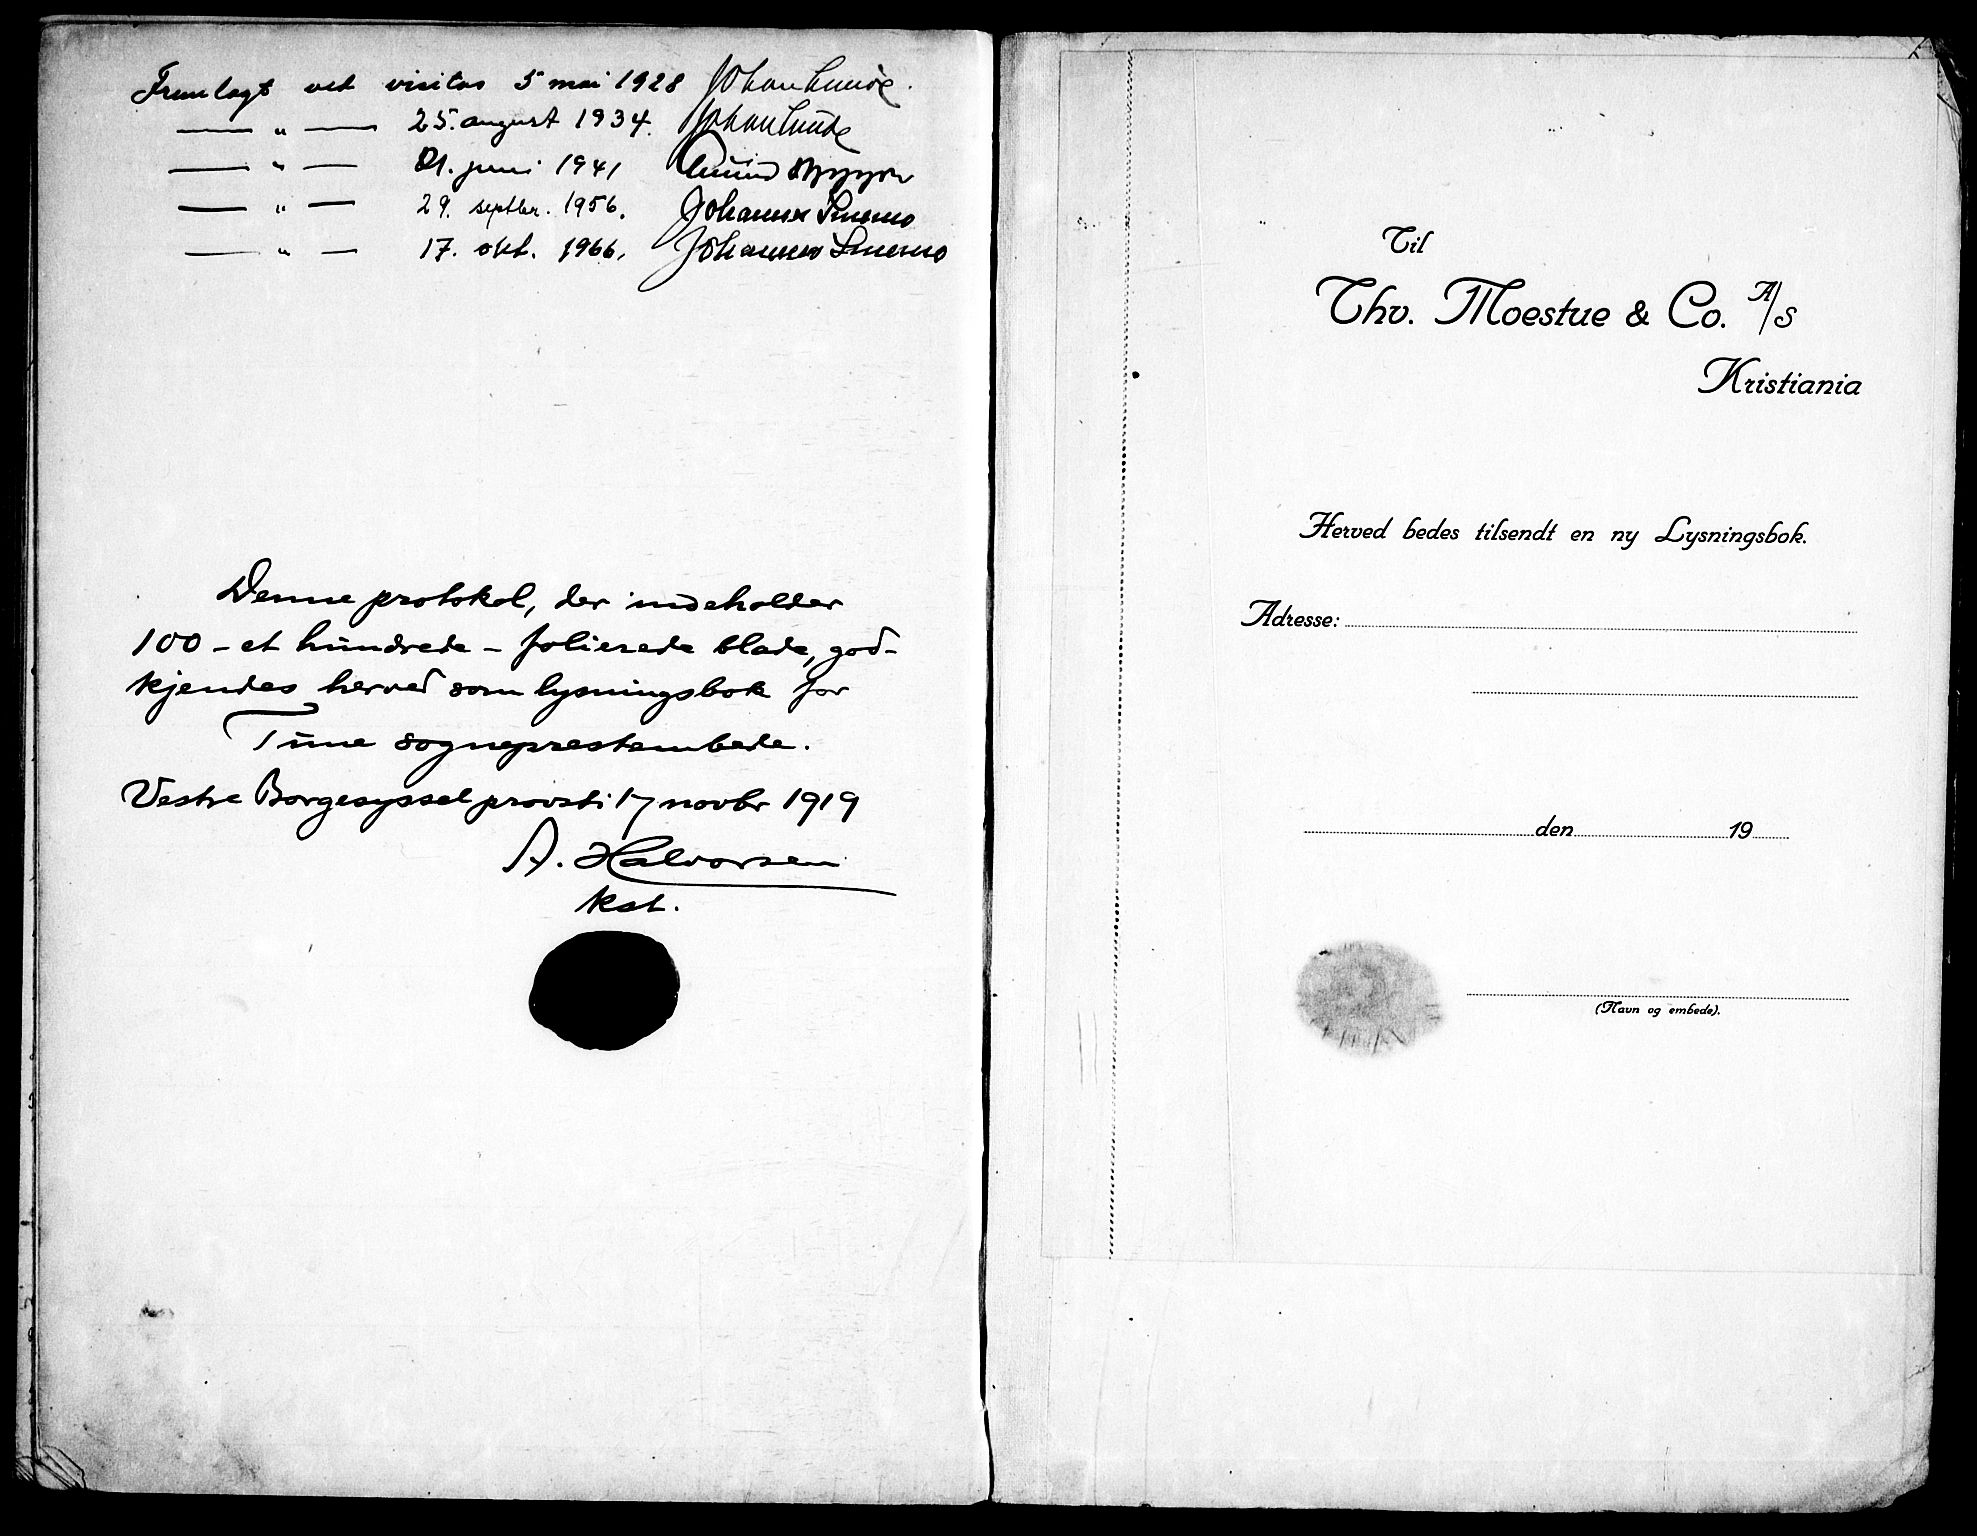 Fremlagt ved visitas 5 mai 1928 Johan Lunde.
— " — 25. august 1934. Johan Lunde
— " — 21. juni 1941
— " — 29. septbr. 1956. Johannes Smemo
— " — 17. okt. 1966. Johannes Smemo
Denne protokol, der indeholder
100 – et hundrede – folierede blade, god-
kjendes herved som lysningsbok for
Tune sogneprestembede.
Vestre Borgesyssel provsti 17 novbr 1919
A. Halvorsen
kst.
Til
Thv. Moestue & Co. A/S
Kristiania
Herved bedes tilsendt en ny Lysningsbok.
Adresse:
den 19
(Navn og embede).